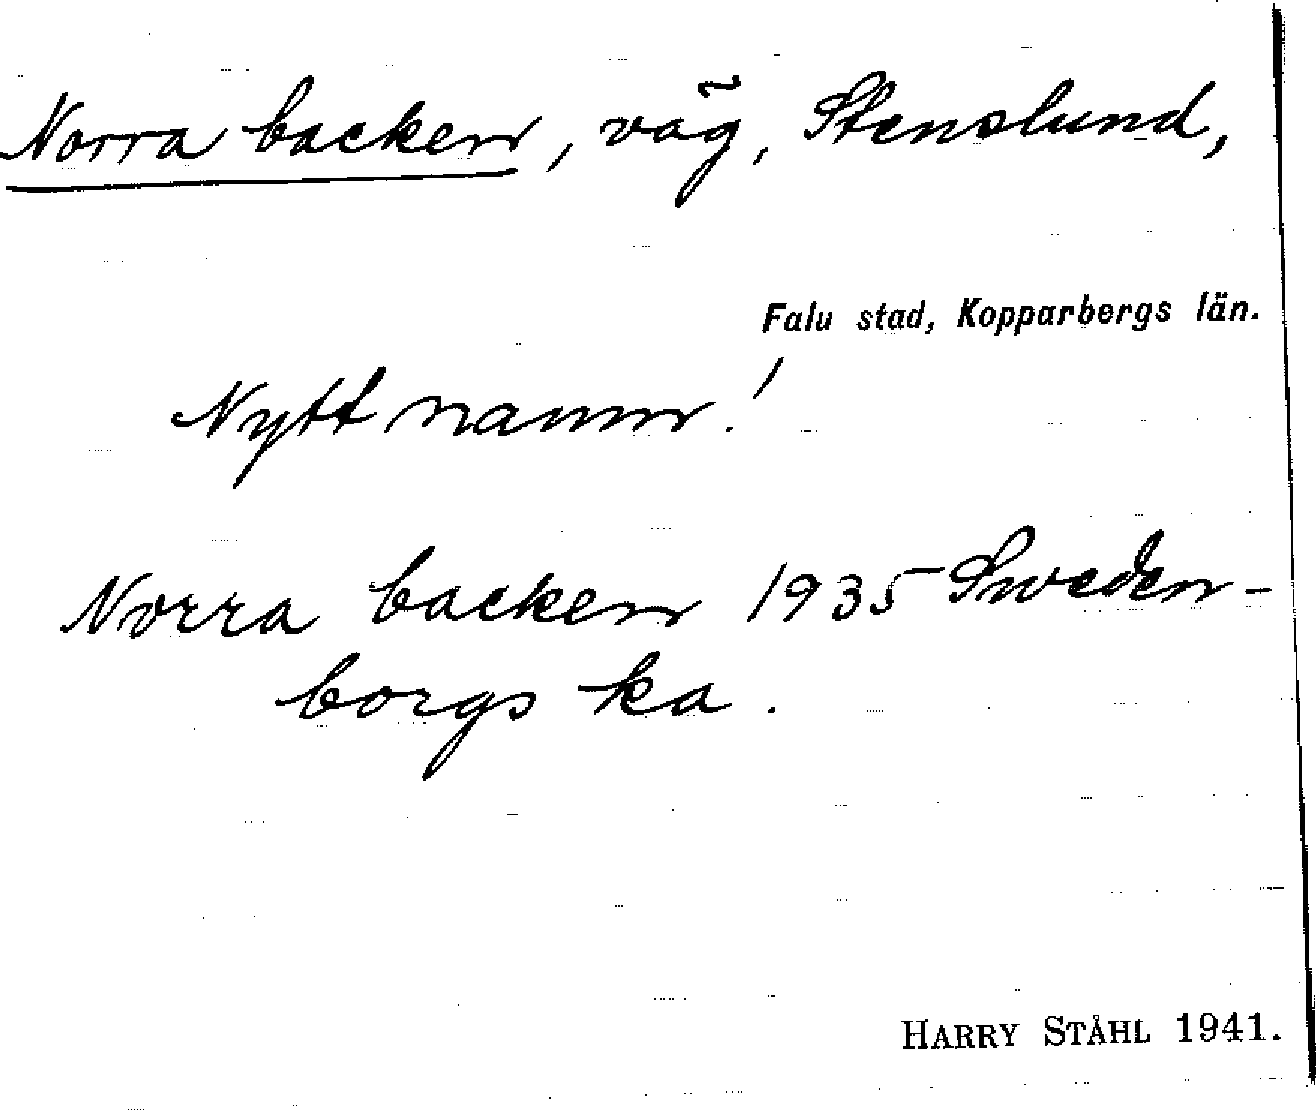 Norra backen, väg, Stenslund,
Falu stad, Kopparbergs län.
Nytt namn!
Norra backen 1935 Sweden-
borgs ka.
HARRY STÅHL 1941.